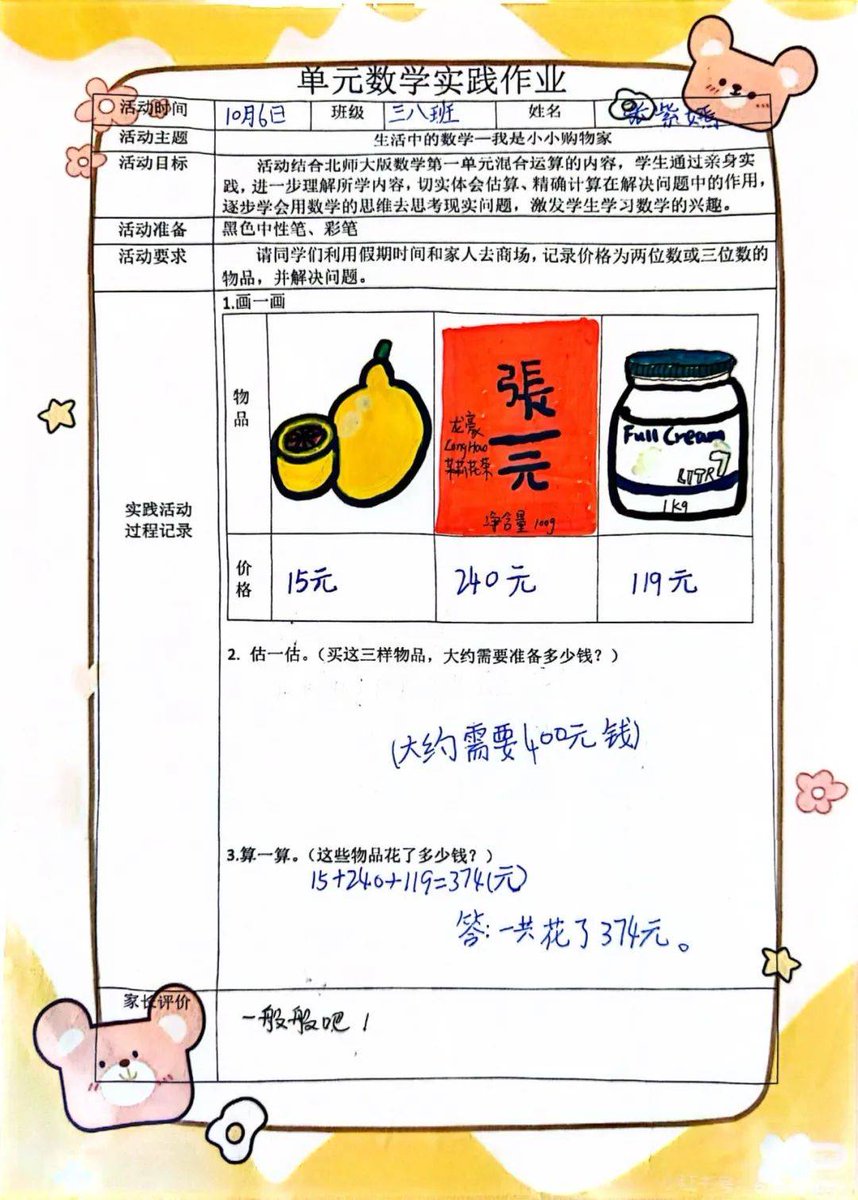 单元数学实践作业
活动时间 10月6日 班级 三八班 姓名 张紫嫣
活动主题 生活中的数学—我是小小购物家
活动目标 活动结合北师大版数学第一单元混合运算的内容，学生通过亲身实
践，进一步理解所学内容，切实体会估算、精确计算在解决问题中的作用，
逐步学会用数学的思维去思考现实问题，激发学生学习数学的兴趣。
活动准备 黑色中性笔、彩笔
活动要求 请同学们利用假期时间和家人去商场，记录价格为两位数或三位数的
物品，并解决问题。
实践活动
过程记录
1.画一画
物品
張一元
龙豪
LongHao
茉莉花茶
净含量 100g
Full Cream
1Kg
价格 15元 240元 119元
2. 估一估。（买这三样物品，大约需要准备多少钱？）
(大约需要400元钱)
3.算一算。（这些物品花了多少钱？）
15+240+119=374(元)
答:一共花了374元。
家长评价 一般般吧！